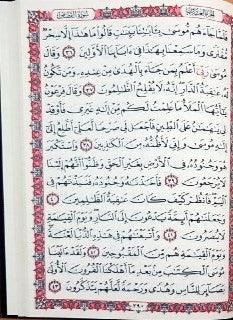 الجزء العشرون سورة القصص
فلما جاءهم موسى بـٔايٰتنا بينٰت قالوا ما هٰذا إلا سحر
مفترى وما سمعنا بهٰذا في ءابائنا الأولين ٣٦ وقال
موسى ربي أعلم بمن جاء بالهدى من عنده ومن تكون
له عٰقبة الدار إنه لا يفلح الظٰلمون ٣٧ وقال فرعون
يٰأيها الملأ ما علمت لكم من إلٰه غيري فأوقد
لي يٰهٰمٰن على الطين فاجعل لي صرحا لعلي أطلع إلى
إلٰه موسى وإني لأظنه من الكٰذبين ٣٨ واستكبر
هو وجنوده في الأرض بغير الحق وظنوا أنهم إلينا
لا يرجعون ٣٩ فأخذنٰه وجنوده فنبذنٰهم في
اليم فانظر كيف كان عٰقبة الظٰلمين ٤٠
وجعلنٰهم أئمة يدعون إلى النار ويوم القيٰمة
لا ينصرون ٤١ وأتبعنٰهم في هٰذه الدنيا لعنة
ويوم القيٰمة هم من المقبوحين ٤٢ ولقد ءاتينا
موسى الكتٰب من بعد ما أهلكنا القرون الأولى
بصائر للناس وهدى ورحمة لعلهم يتذكرون ٤٣
٣٩٠